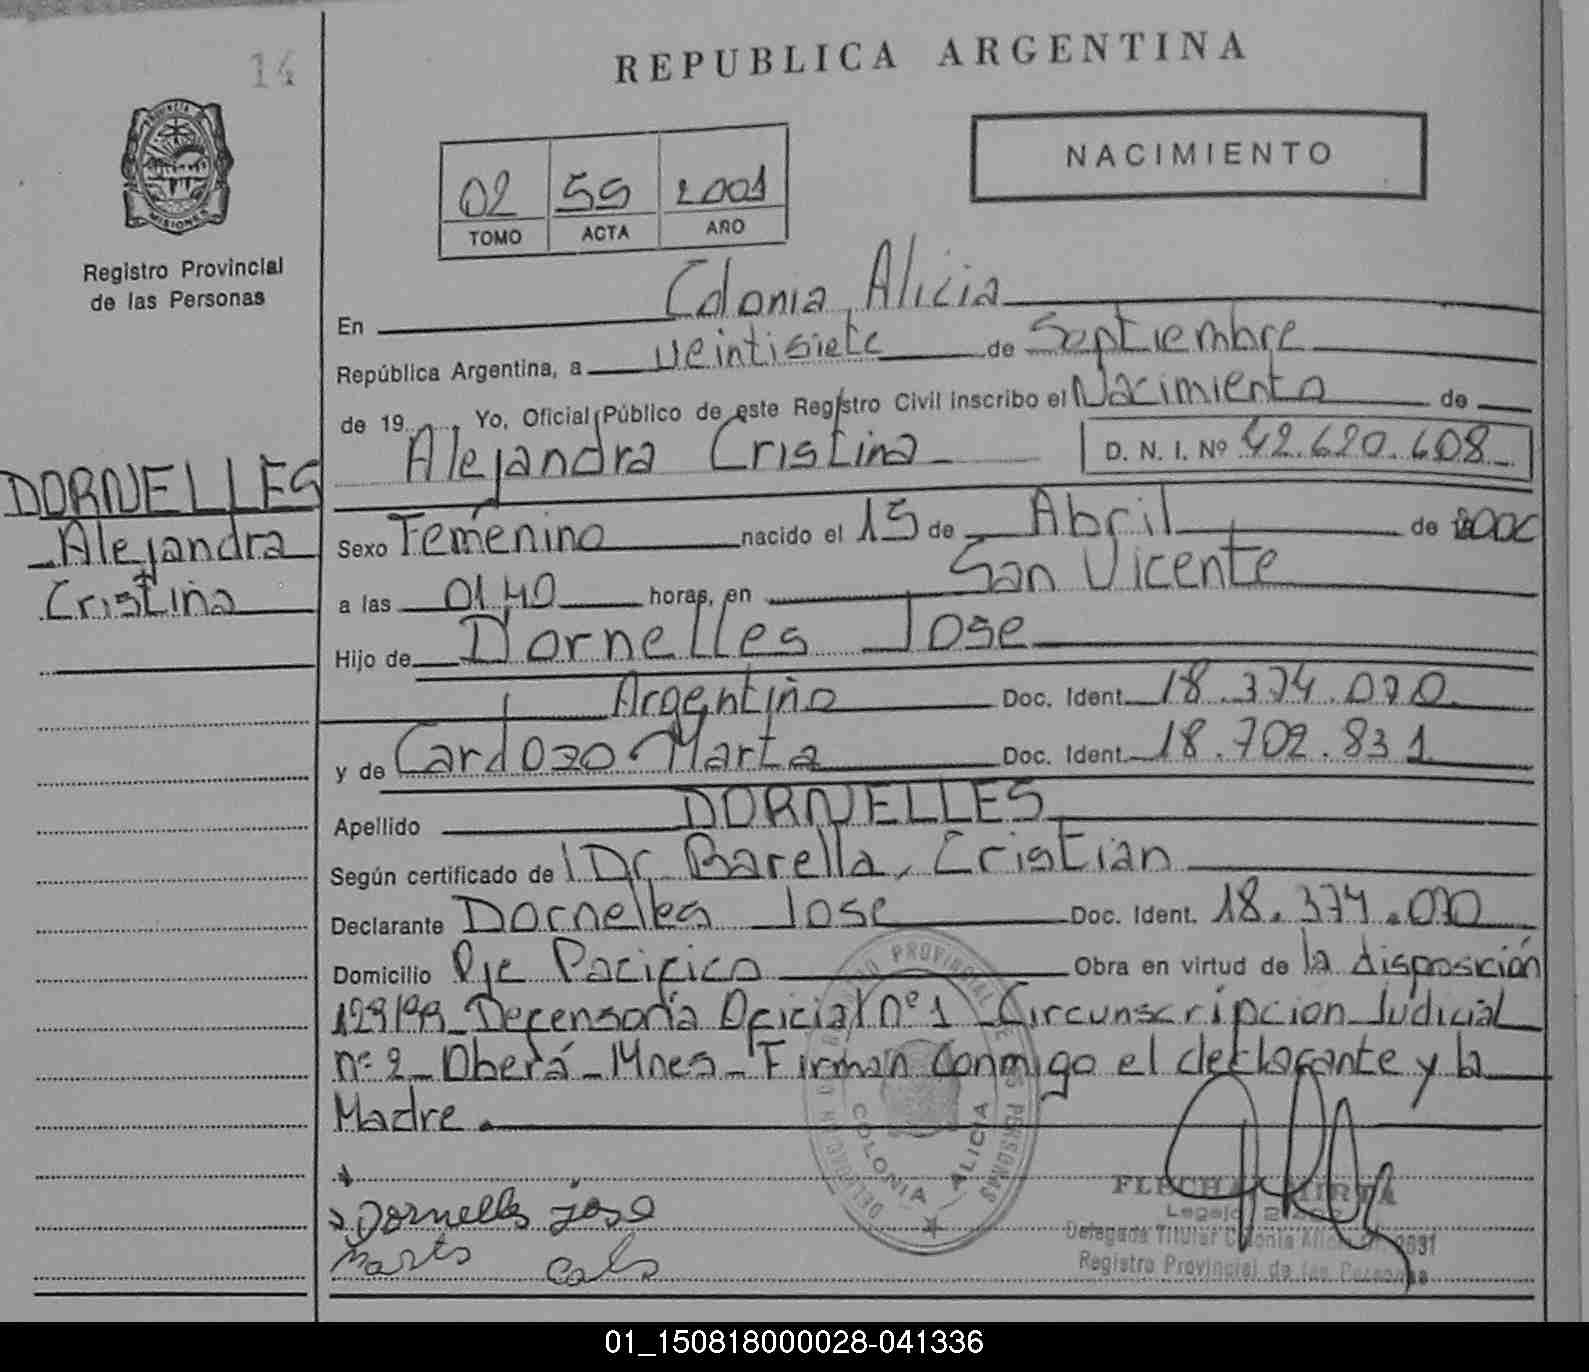 14
REPUBLICA ARGENTINA
NACIMIENTO
02 55 2001
TOMO ACTA AÑO
PROVINCIA
MISIONES
Registro Provincial
de las Personas
En Colonia Alicia
República Argentina, a veintisiete de Septiembre
de 19...... Yo, Oficial Público de este Registro Civil inscribo el Nacimiento de
Alejandra Cristina D. N. I. Nº 42.620.608
DORNELLES
Alejandra
Cristina
Sexo Femenino nacido el 15 de Abril de 2000
a las 01 40 horas, en San Vicente
Hijo de Dornelles Jose
Argentino Doc. Ident. 18.374.070
y de Cardozo Marta Doc. Ident. 18.702.831
Apellido DORNELLES
Según certificado de Dr Barella, Cristian
Declarante Dornelles Jose Doc. Ident. 18.374.070
Domicilio Pje Pacifico Obra en virtud de la disposición
129/99 Defensoría Oficial nº 1 Circunscripcion Judicial
nº 2 - Oberá - Mnes - Firman conmigo el declarante y la
Madre.
Dornelles jose
COLONIA ALICIA
FLECHA MIRTA
Legajo
Delegada Titular Colonia Alicia
Registro Provincial de las Personas
01_150818000028-041336